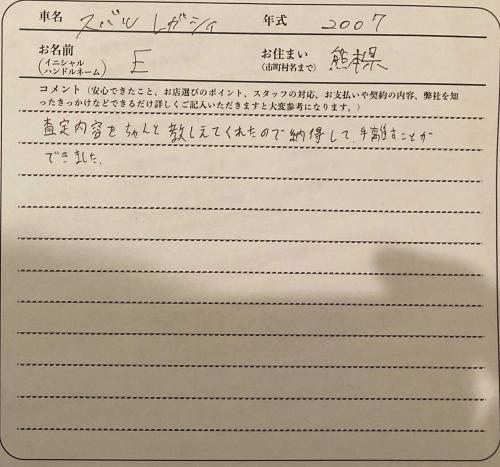 車名 スバル レガシィ 年式 2007
お名前 (イニシャル ハンドルネーム) E お住まい (市町村名まで) 熊本県
コメント（安心できたこと、お店選びのポイント、スタッフの対応、お支払いや契約の内容、弊社を知
ったきっかけなどできるだけ詳しくご記入いただきますと大変参考になります。）
査定内容をちゃんと教しえてくれたので納得して、手離すことが
できました。